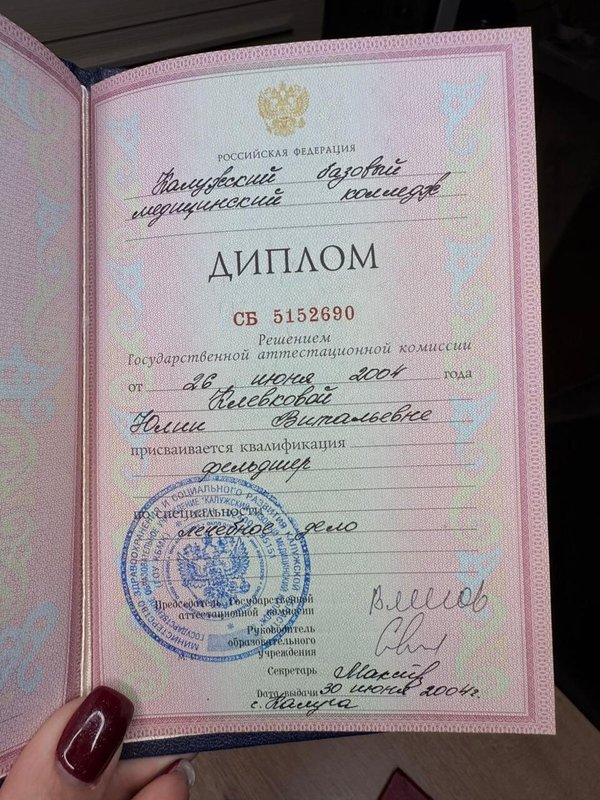 РОССИЙСКАЯ ФЕДЕРАЦИЯ
Калужский базовый
медицинский колледж
ДИПЛОМ
СБ 5152690
Решением
Государственной аттестационной комиссии
от 26 июня 2004 года
Клевковой
Юлии Витальевне
присваивается квалификация
фельдшер
по специальности
лечебное дело
Председатель Государственной
аттестационной комиссии
Руководитель
образовательного
учреждения
Секретарь
Дата выдачи 30 июня 2004г.
г. Калуга
МИНИСТЕРСТВО ЗДРАВООХРАНЕНИЯ И СОЦИАЛЬНОГО РАЗВИТИЯ КАЛУЖСКОЙ ОБЛАСТИ